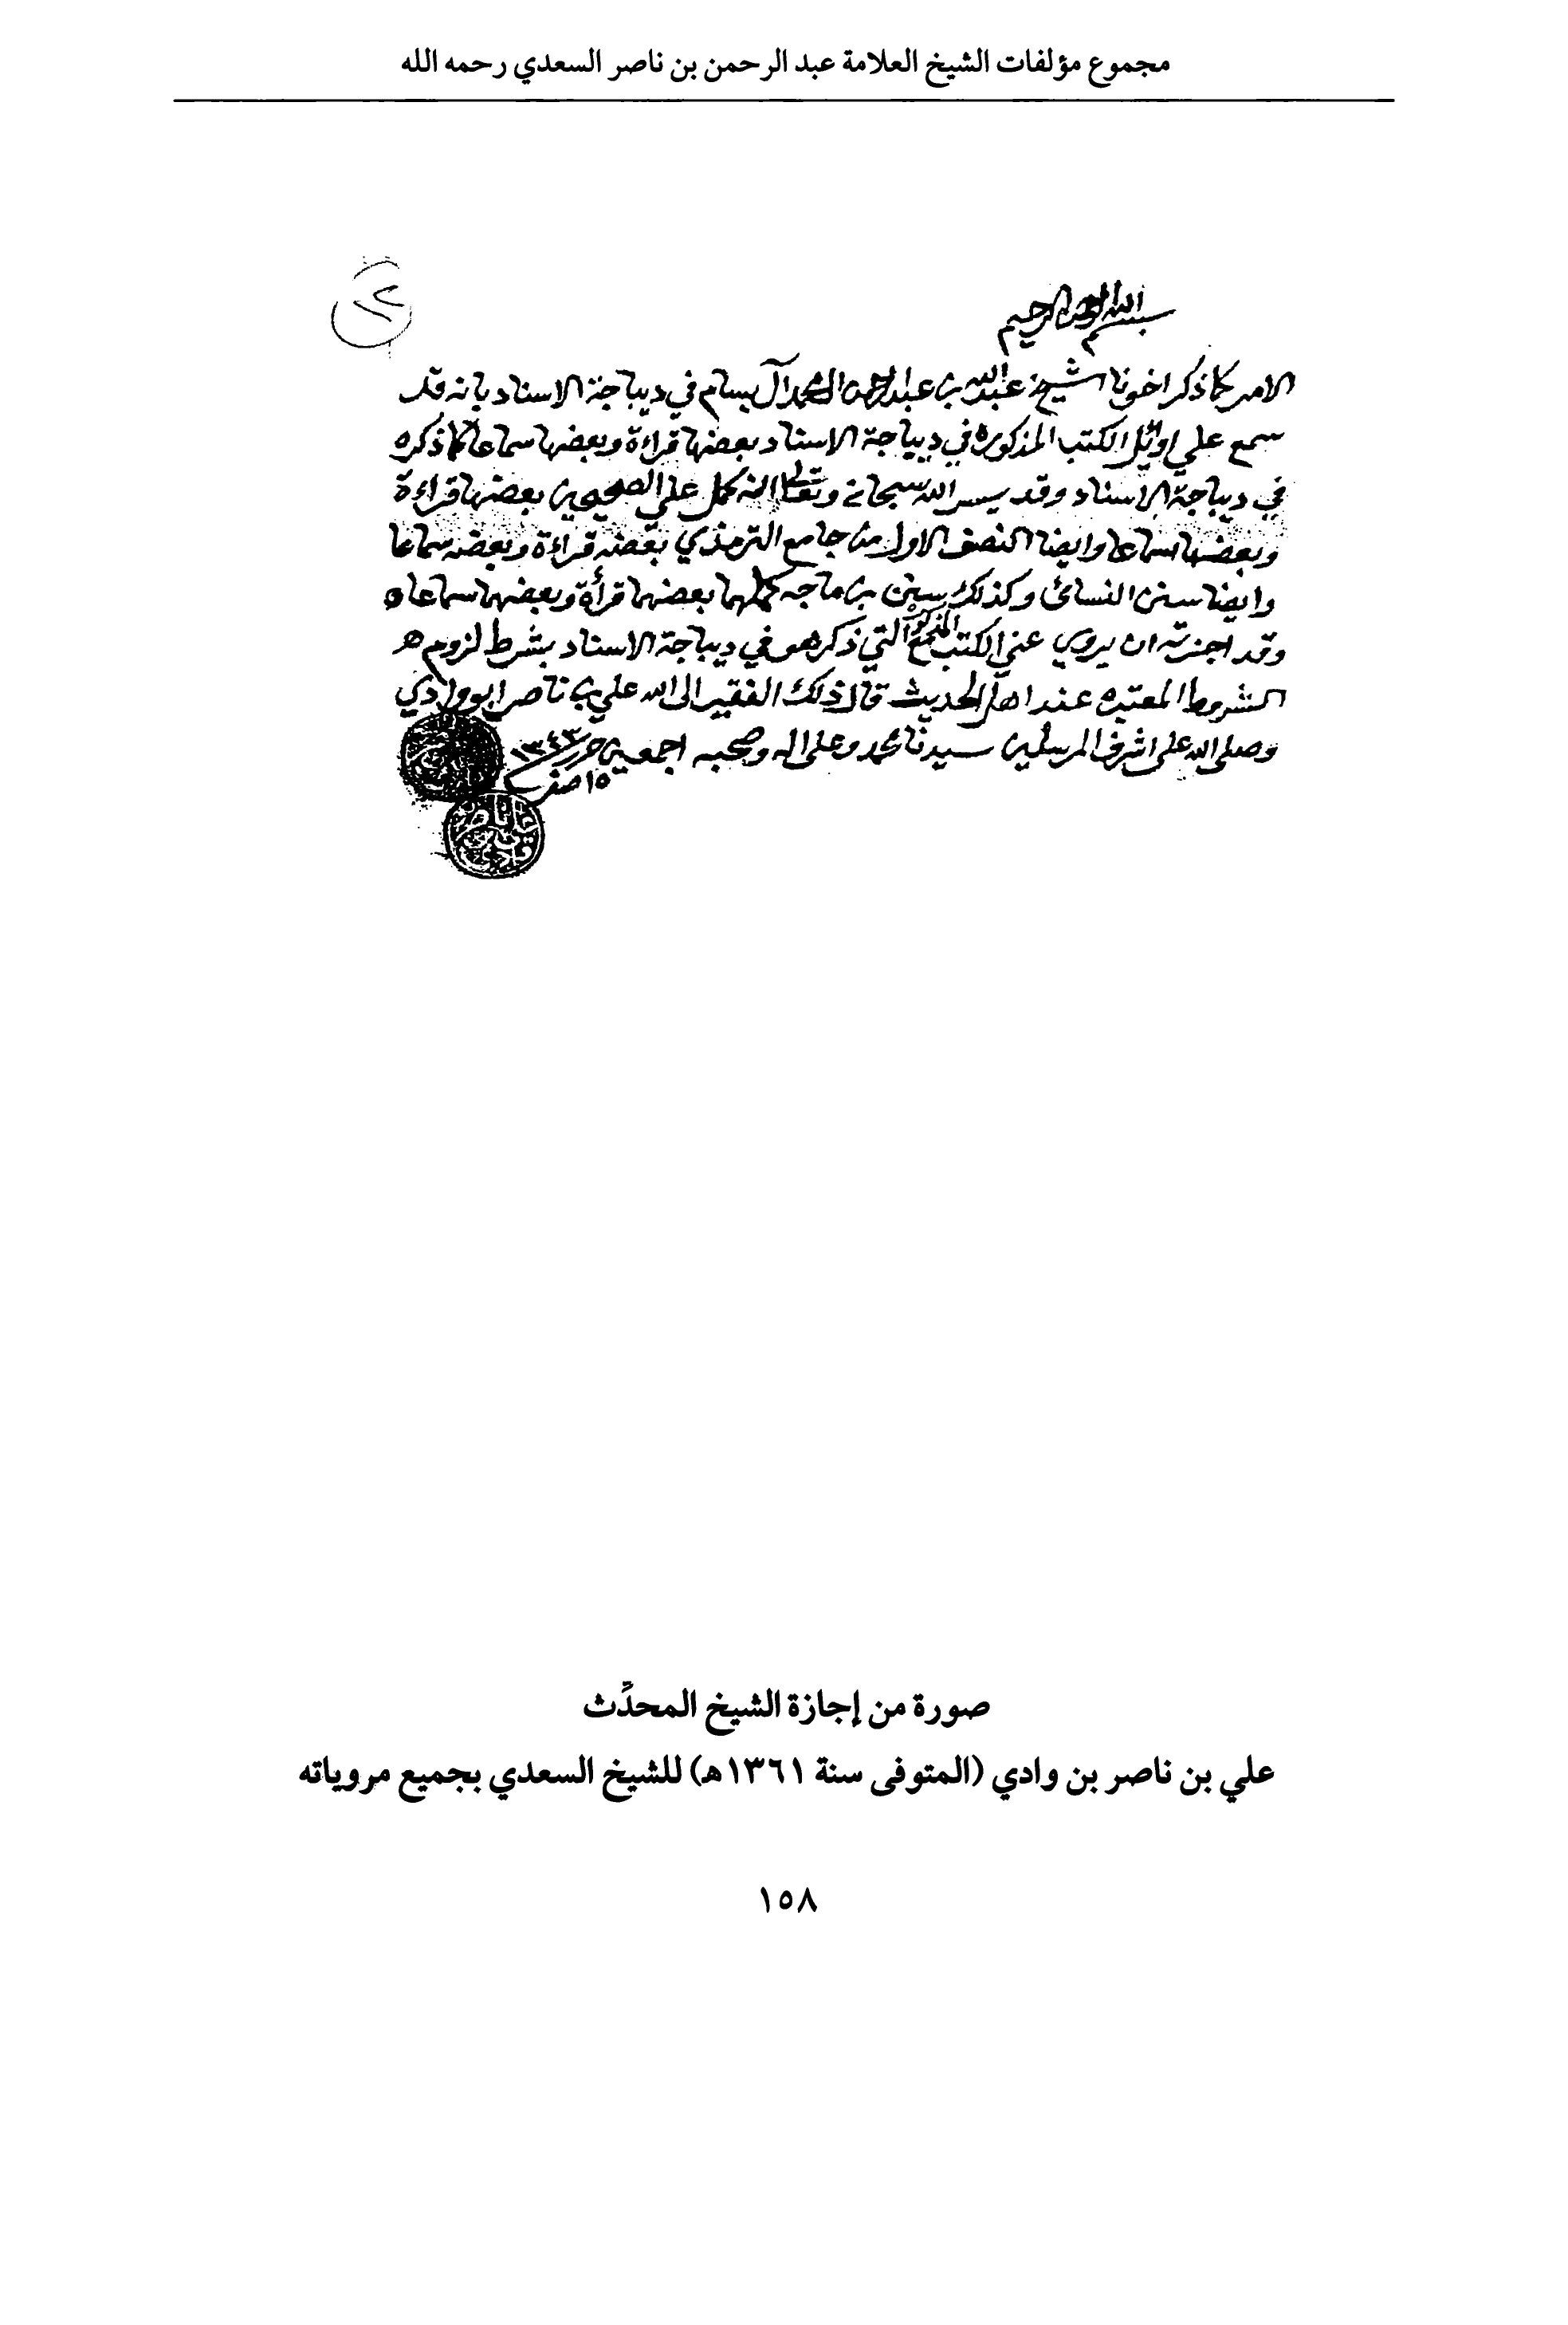 مجموع مؤلفات الشيخ العلامة عبد الرحمن بن ناصر السعدي رحمه الله
بسم الله الرحمن الرحيم
الامر كما ذكر اخونا الشيخ عبدالله بن عبدالرحمن المحمد آل بسام في ديباجة الاسناد بانه قد
سمع علي اوئل الكتب المذكوره في ديباجة الاسناد بعضها قراءة وبعضها سماعا كما ذكره
في ديباجة الاسناد وقد يسر الله سبحانه وتعالى انه كمل علي الصحيحين بعضها قراءة
وبعضها سماعا وايضا النصف الاول من جامع الترمذي بعضه قراءة وبعضه سماعا
وايضا سنن النسائي وكذلك سنن بن ماجه كملهما بعضهما قرأة وبعضهما سماعا
وقد اجزته ان يروي عني الكتب المذكورة التي ذكرها في ديباجة الاسناد بشرط لزوم
الشروط المعتبره عند اهل الحديث قال ذلك الفقير الى الله علي بن ناصر ابو وادي
وصلى الله على اشرف المرسلين سيدنا محمد وعلى اله وصحبه اجمعين حرر ١٣٤٣
١٥ صفر
صورة من إجازة الشيخ المحدِّث
علي بن ناصر بن وادي (المتوفى سنة ١٣٦١هـ) للشيخ السعدي بجميع مروياته
١٥٨